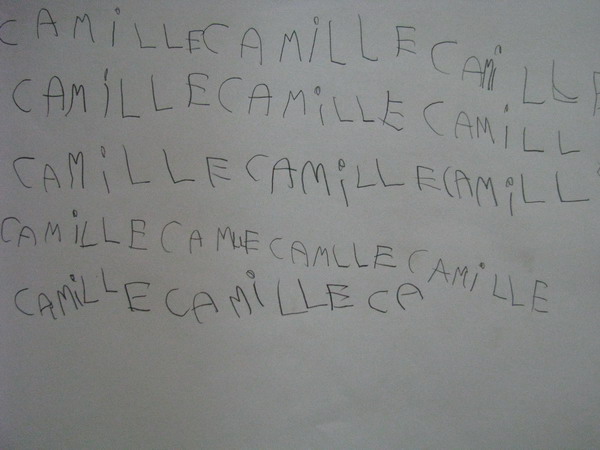 CAMiLLE CAMiLLE CAMiLLE
CAMiLLE CAMiLLE CAMiLL
CAMiLLE CAMiLLE CAMiLL
CAMiLLE CAMLLE CAMLLE CAMiLLE
CAMiLLE CAMiLLE CA